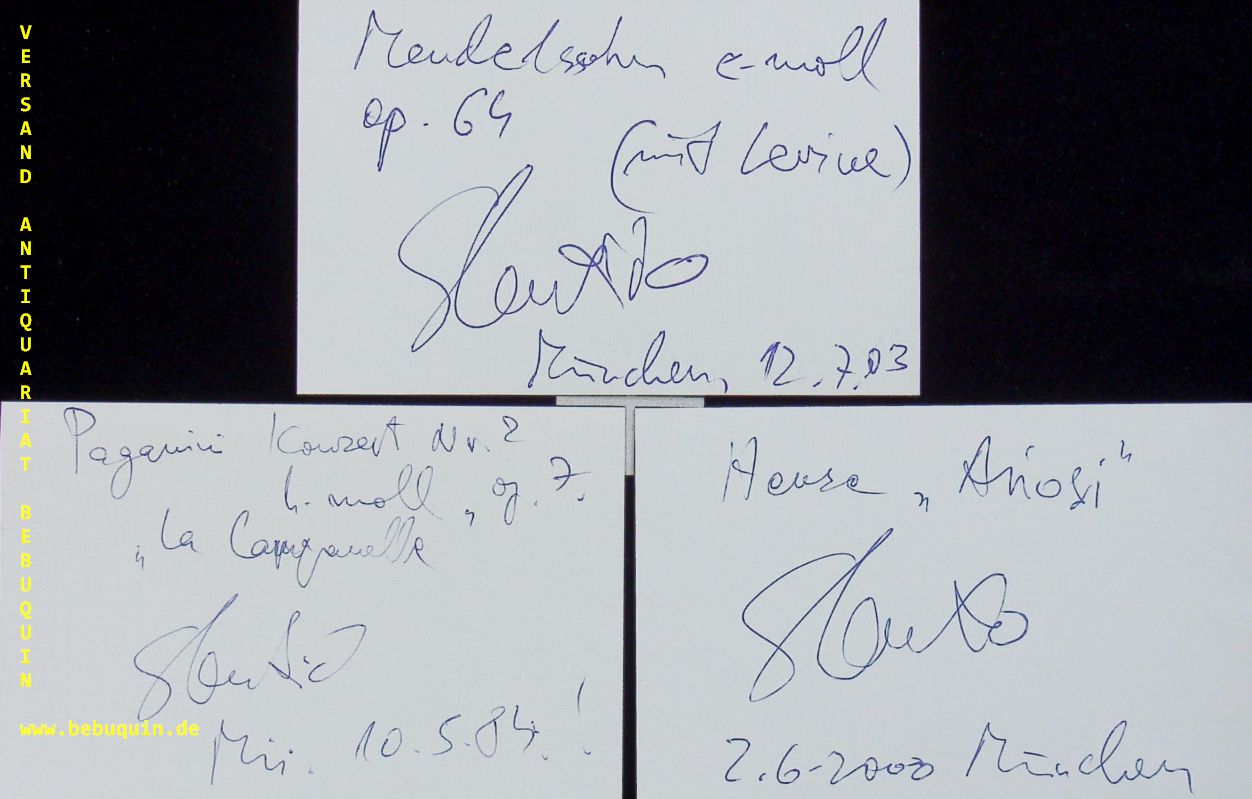 Mendelssohn e-moll
op. 64
(mit Levine)
München, 12.7.03
Paganini Konzert Nr. 2
h-moll, op. 7.
„La Campanella
Mü. 10.5.84. !
Henze „Ariosi“
2.6-2000 München
VERSAND ANTIQUARIAT BEBUQUIN
www.bebuquin.de